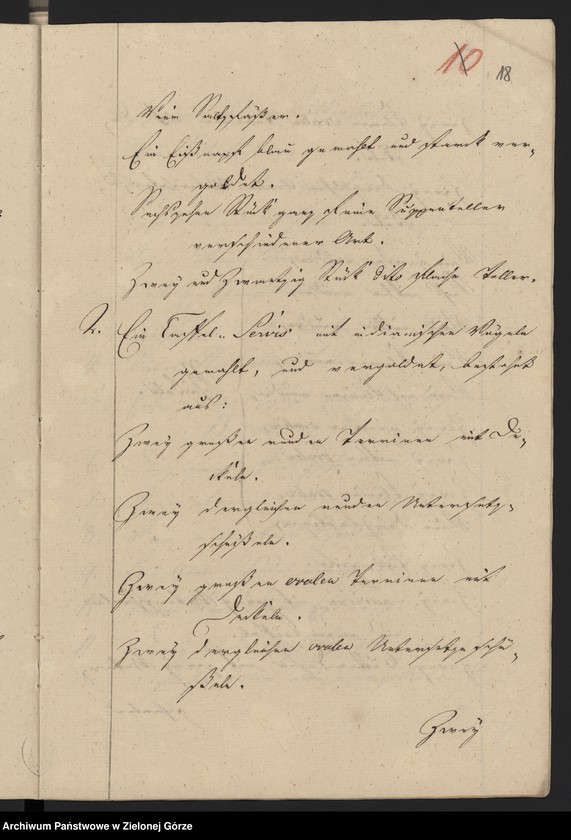 10
18
Vier Saltzfäßer.
Ein Eißnapf blau gemahlt und starck ver-
goldet.
Sechszehen Stück ganz feine Suppenteller
verschiedener Art.
Zwey und Zwantzig Stück dito flache Teller.
2. Ein Taffel-Servis mit indianischen Vögeln
gemahlt, und vergoldet, bestehet
aus:
Zwey großen runden Terrinen mit De-
ckeln.
Zwey dergleichen runden Untersetz-
schüßeln.
Zwey großen ovalen Terrinen mit
Deckeln.
Zwey dergleichen ovalen Untersetzschü-
ßeln.
Zwey
Archiwum Państwowe w Zielonej Górze